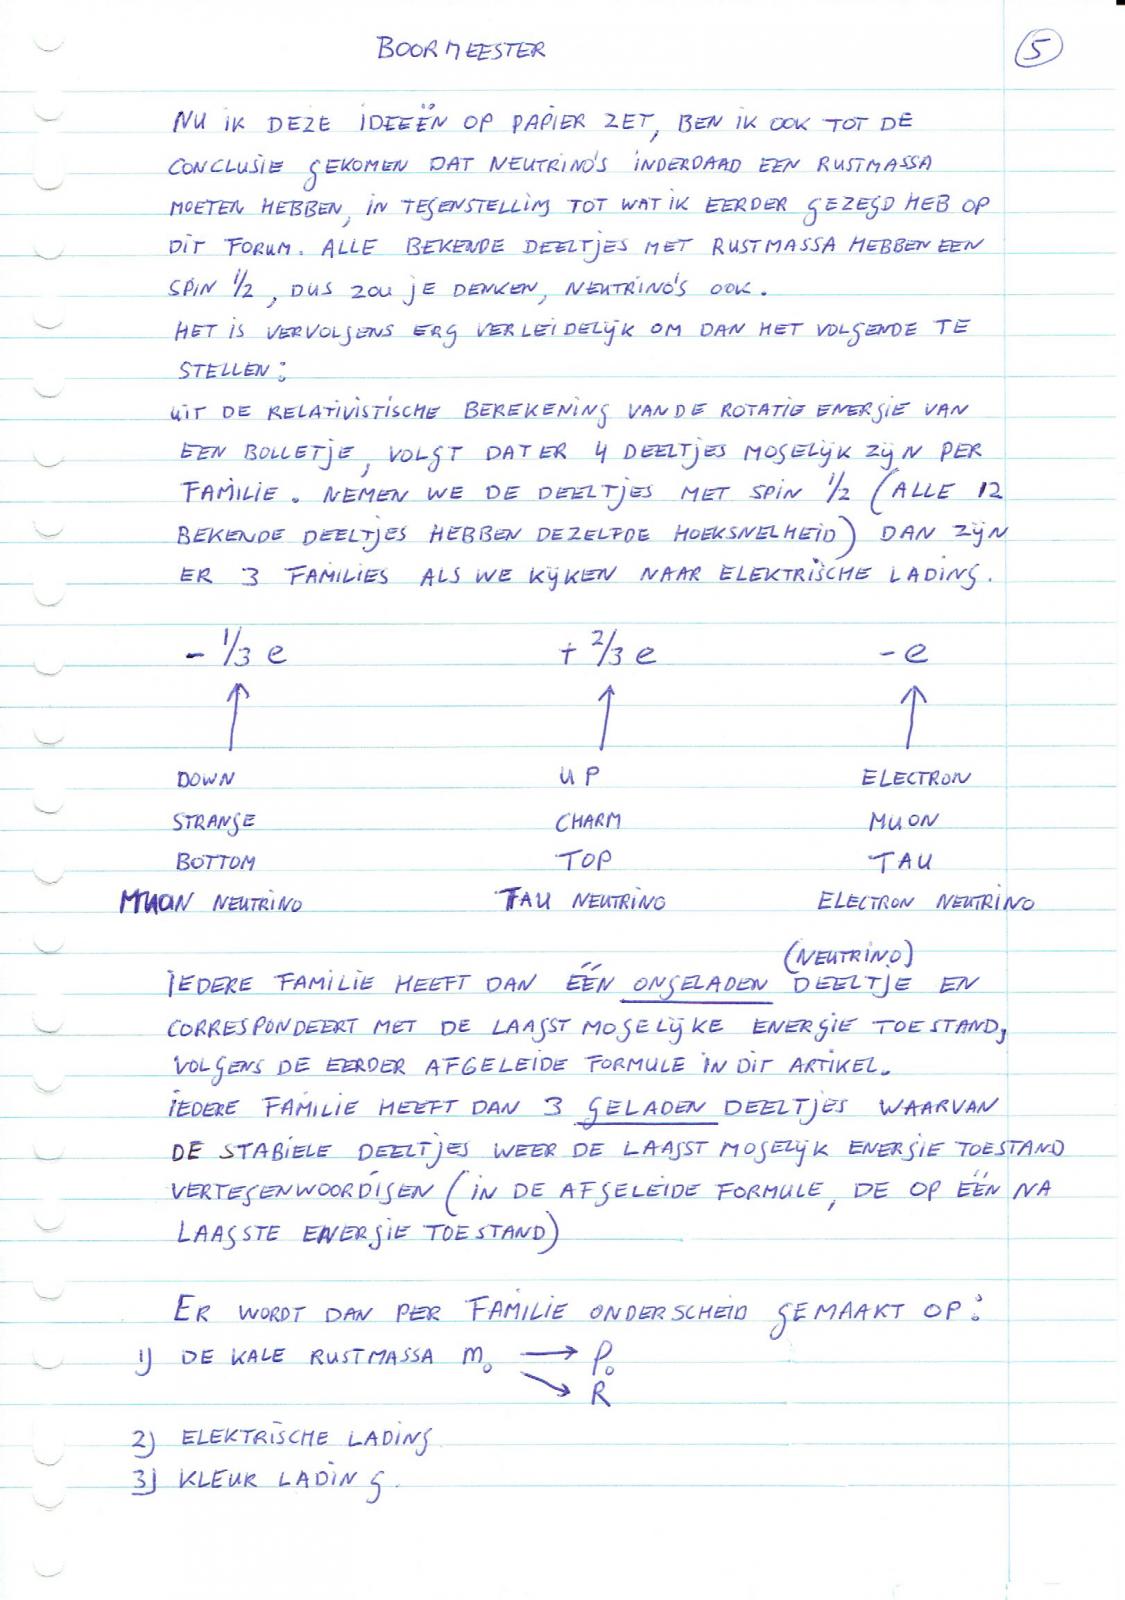 BOORMEESTER
5
NU IK DEZE IDEEËN OP PAPIER ZET, BEN IK OOK TOT DE
CONCLUSIE GEKOMEN DAT NEUTRINO'S INDERDAAD EEN RUSTMASSA
MOETEN HEBBEN, IN TEGENSTELLING TOT WAT IK EERDER GEZEGD HEB OP
DIT FORUM. ALLE BEKENDE DEELTJES MET RUSTMASSA HEBBEN EEN
SPIN 1/2, DUS ZOU JE DENKEN, NEUTRINO'S OOK.
HET IS VERVOLGENS ERG VERLEIDELIJK OM DAN HET VOLGENDE TE
STELLEN:
UIT DE RELATIVISTISCHE BEREKENING VAN DE ROTATIE ENERGIE VAN
EEN BOLLETJE, VOLGT DAT ER 4 DEELTJES MOGELIJK ZIJN PER
FAMILIE. NEMEN WE DE DEELTJES MET SPIN 1/2 (ALLE 12
BEKENDE DEELTJES HEBBEN DEZELFDE HOEKSNELHEID) DAN ZIJN
ER 3 FAMILIES ALS WE KIJKEN NAAR ELEKTRISCHE LADING.
- 1/3 e + 2/3 e - e
DOWN UP ELECTRON
STRANGE CHARM MUON
BOTTOM TOP TAU
MUON NEUTRINO TAU NEUTRINO ELECTRON NEUTRINO
(NEUTRINO)
IEDERE FAMILIE HEEFT DAN ÉÉN ONGELADEN DEELTJE EN
CORRESPONDEERT MET DE LAAGST MOGELIJKE ENERGIE TOESTAND,
VOLGENS DE EERDER AFGELEIDE FORMULE IN DIT ARTIKEL.
IEDERE FAMILIE HEEFT DAN 3 GELADEN DEELTJES WAARVAN
DE STABIELE DEELTJES WEER DE LAAGST MOGELIJK ENERGIE TOESTAND
VERTEGENWOORDIGEN (IN DE AFGELEIDE FORMULE, DE OP ÉÉN NA
LAAGSTE ENERGIE TOESTAND)
ER WORDT DAN PER FAMILIE ONDERSCHEID GEMAAKT OP:
1) DE KALE RUSTMASSA m₀ → ρ₀
↘ R
2) ELEKTRISCHE LADING
3) KLEUR LADING.